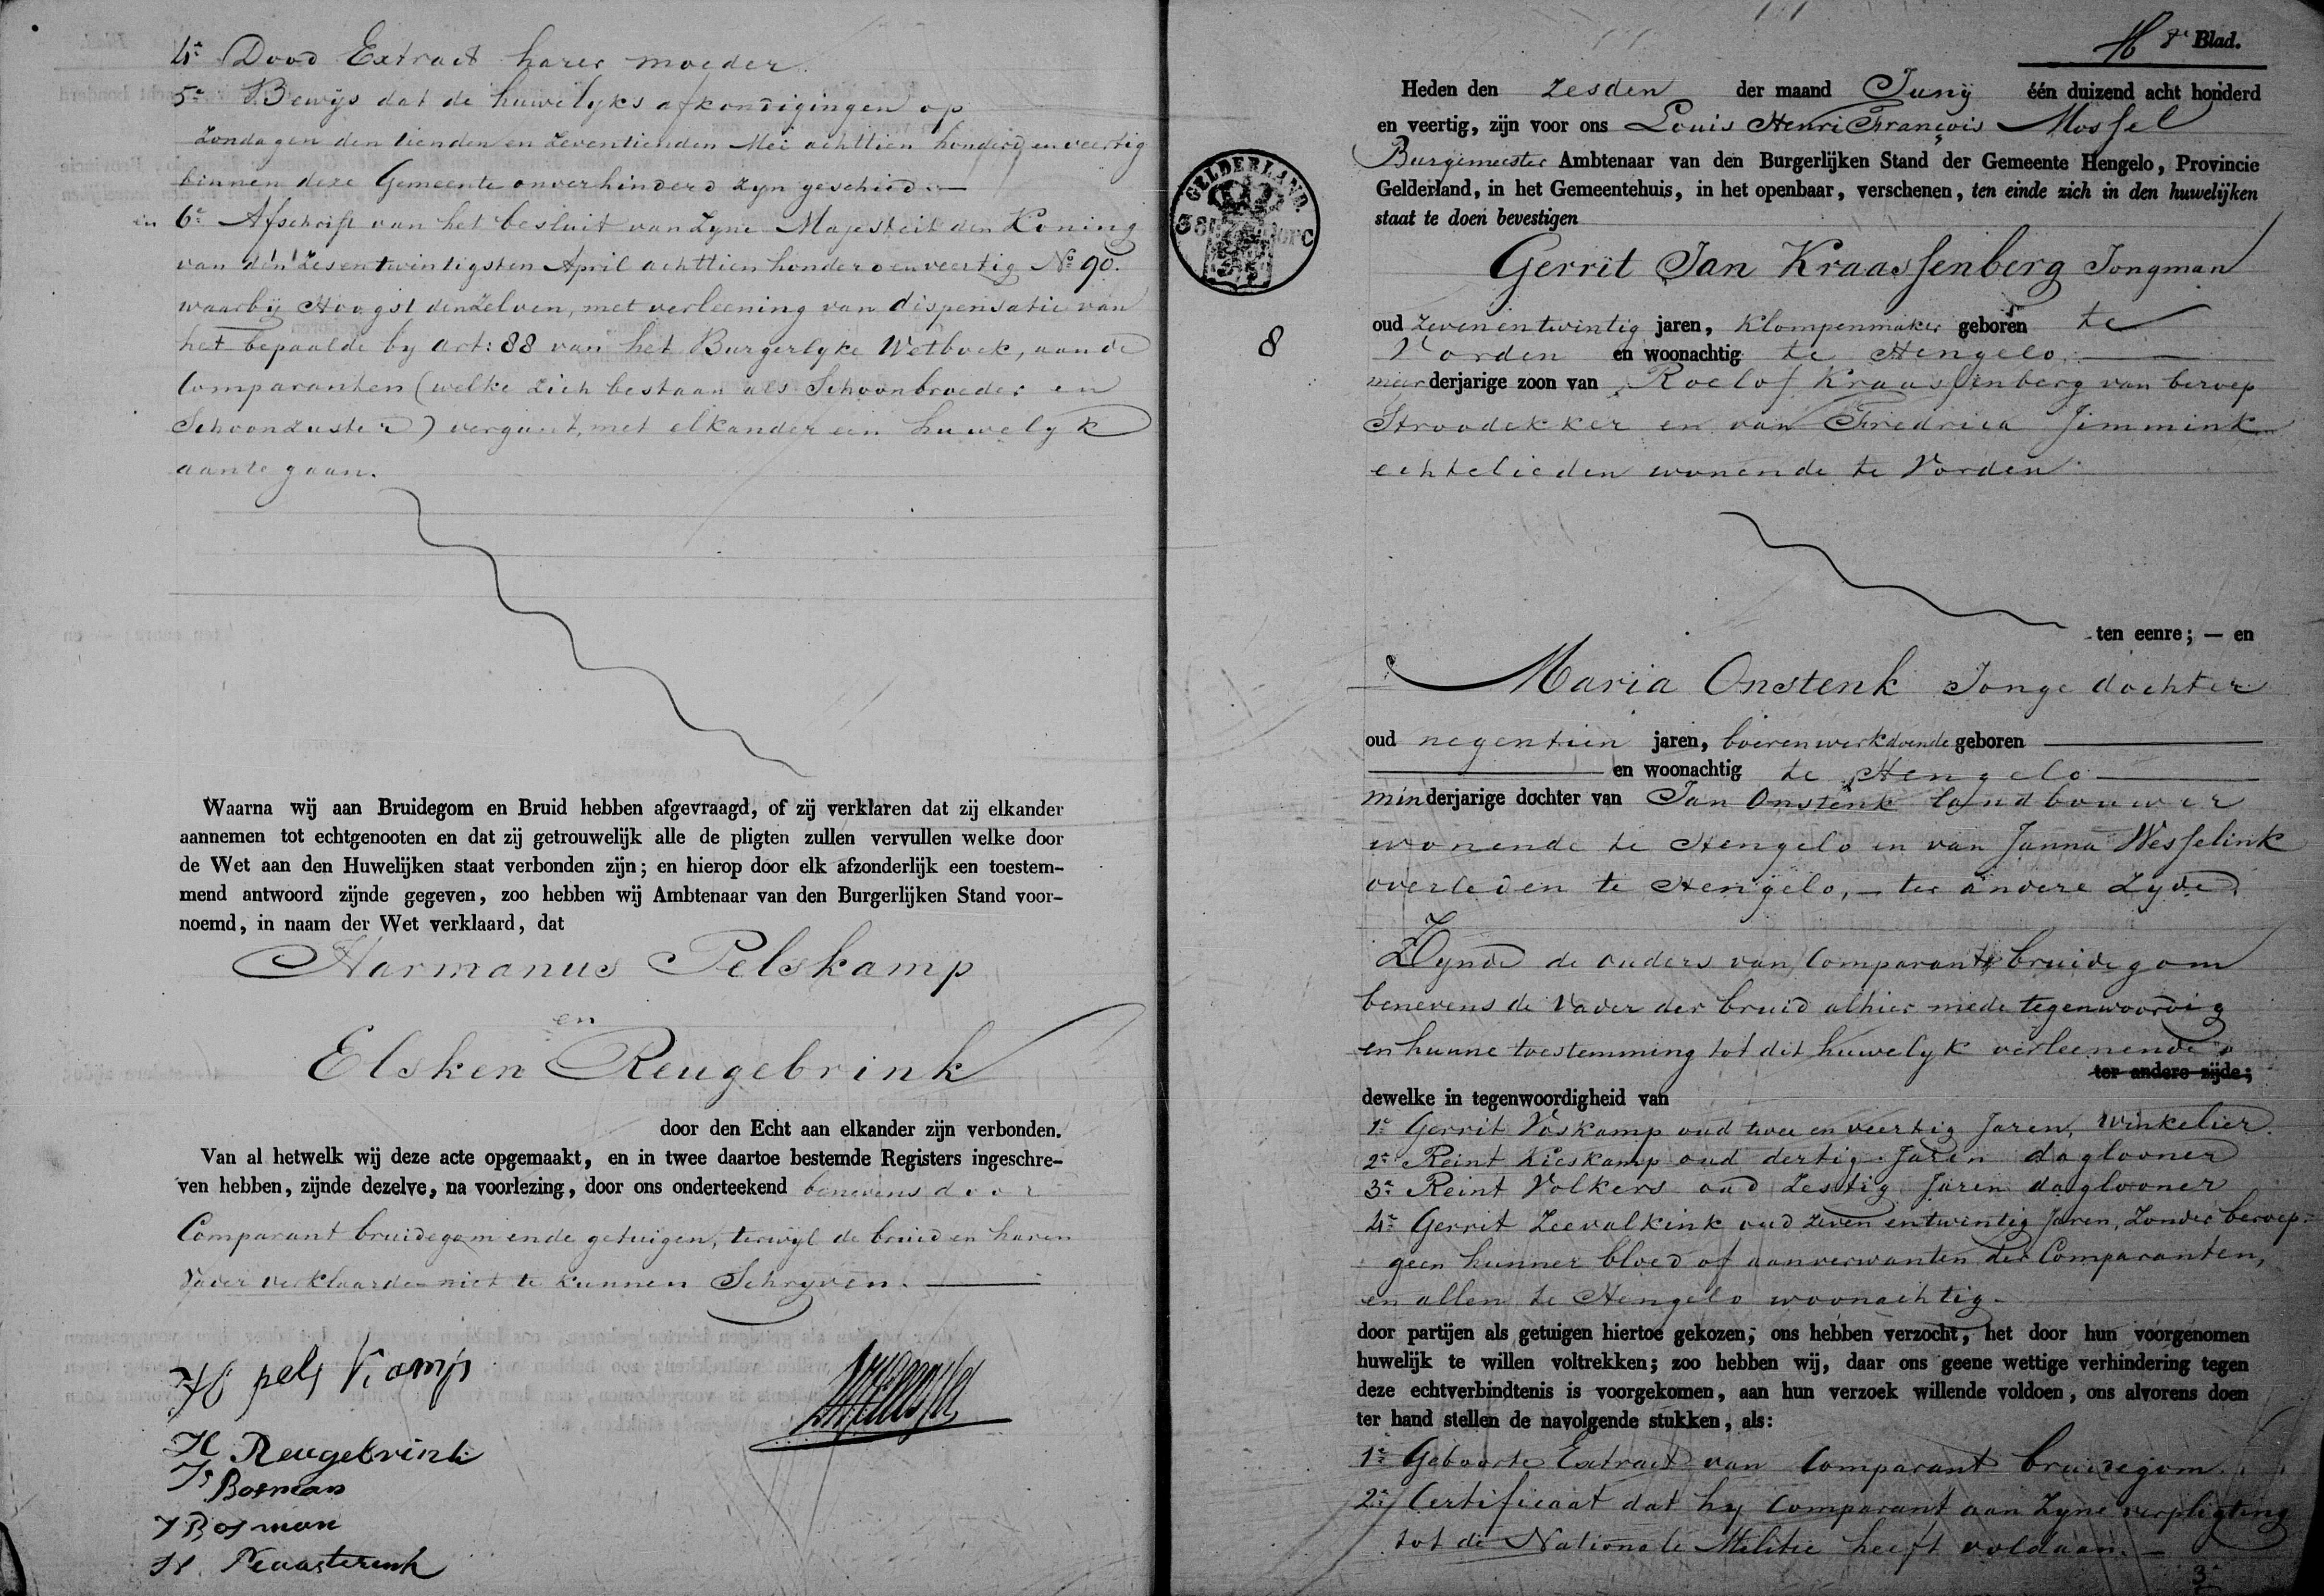 4e Dood Extract harer moeder
5e Bewijs dat de huwelyks afkondigingen op
Zondagen den tienden en zeventienden Mei achttien honderd en veertig
binnen deze Gemeente onverhinderd zyn geschied. —
en 6e Afschrift van het besluit van Zyne Majesteit den Koning
van den zesentwintigsten April achttien honderd en veertig No 90.
waarby Hoogst denzelven, met verleening van dispensatie van
het bepaalde by art: 88 van het Burgerlyke Wetboek, aan de
Comparanten (welke zich bestaan als Schoonbroeder en
Schoonzuster) vergunt, met elkander een huwelyk
aan te gaan.
Waarna wij aan Bruidegom en Bruid hebben afgevraagd, of zij verklaren dat zij elkander
aannemen tot echtgenooten en dat zij getrouwelijk alle de pligten zullen vervullen welke door
de Wet aan den Huwelijken staat verbonden zijn; en hierop door elk afzonderlijk een toestem-
mend antwoord zijnde gegeven, zoo hebben wij Ambtenaar van den Burgerlijken Stand voor-
noemd, in naam der Wet verklaard, dat
Harmanus Pelskamp
en
Elsken Reugebrink
door den Echt aan elkander zijn verbonden.
Van al hetwelk wij deze acte opgemaakt, en in twee daartoe bestemde Registers ingeschre-
ven hebben, zijnde dezelve, na voorlezing, door ons onderteekend benevens door
Comparant bruidegom en de getuigen, terwyl de bruid en haren
Vader verklaarden niet te kunnen Schryven.
H pels Kamp
H Reugebrink
Bosman
Bosman
8e Blad.
Heden den zesden der maand Juny één duizend acht honderd
en veertig, zijn voor ons Louis Henri François Mossel
Burgemeester Ambtenaar van den Burgerlijken Stand der Gemeente Hengelo, Provincie
Gelderland, in het Gemeentehuis, in het openbaar, verschenen, ten einde zich in den huwelijken
staat te doen bevestigen
GELDERLAND.
8
Gerrit Jan Kraassenberg Jongman
oud zevenentwintig jaren, klompenmaker geboren te
Vorden en woonachtig te Hengelo
meerderjarige zoon van Roelof Kraassenberg van beroep
Stroodekker en van Fredrica Jimmink
echtelieden wonende te Vorden
ten eenre; — en
Maria Onstenk Jonge dochter
oud negentien jaren, boerenwerkdoende geboren
en woonachtig te Hengelo
minderjarige dochter van Jan Onstenk landbouwer
wonende te Hengelo en van Janna Wesselink
overleden te Hengelo, — ter andere Zyde
Zynde de ouders van Comparant bruidegom
benevens de Vader der bruid alhier mede tegenwoordig
en hunne toestemming tot dit huwelyk verleenende
ter andere zijde;
dewelke in tegenwoordigheid van
1e Gerrit Voskamp oud twee en veertig Jaren, Winkelier.
2e Reint Kieskamp oud dertig Jaren daglooner
3e Reint Volkers oud Zestig Jaren daglooner
4e Gerrit Zeevalkink oud zeven en twintig Jaren, Zonder beroep
geen hunner bloed of aanverwanten der Comparanten,
en allen te Hengelo woonachtig
door partijen als getuigen hiertoe gekozen, ons hebben verzocht, het door hun voorgenomen
huwelijk te willen voltrekken; zoo hebben wij, daar ons geene wettige verhindering tegen
deze echtverbindtenis is voorgekomen, aan hun verzoek willende voldoen, ons alvorens doen
ter hand stellen de navolgende stukken, als:
1e Geboorte Extract van Comparant bruidegom.
2e Certificaat dat hy Comparant aan Zyne verpligting
tot de Nationale Militie heeft voldaan. —
3e